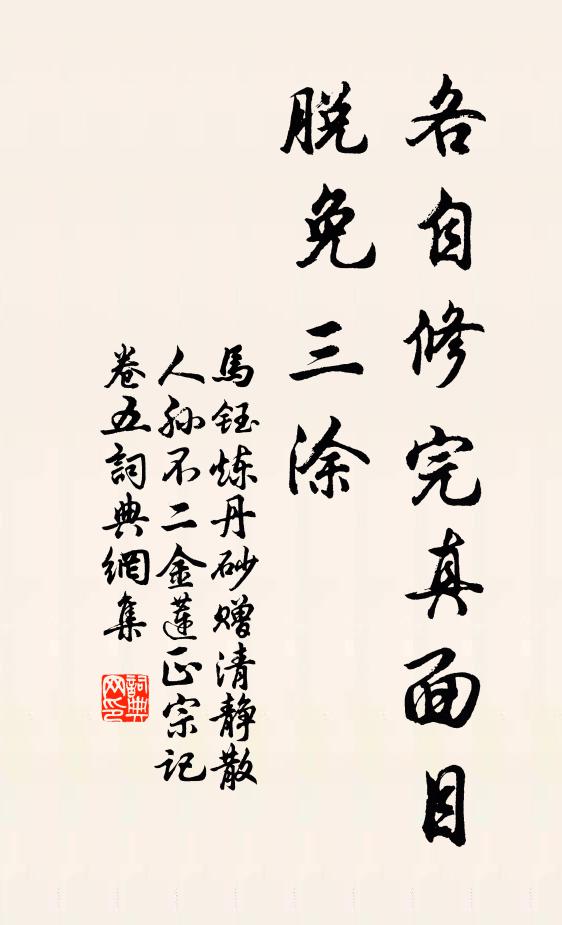 各自修完真面目
脱免三涂
馬鈺炼丹砂赠清静散
人孙不二金莲正宗记
卷五詞典網集
詞典
网印